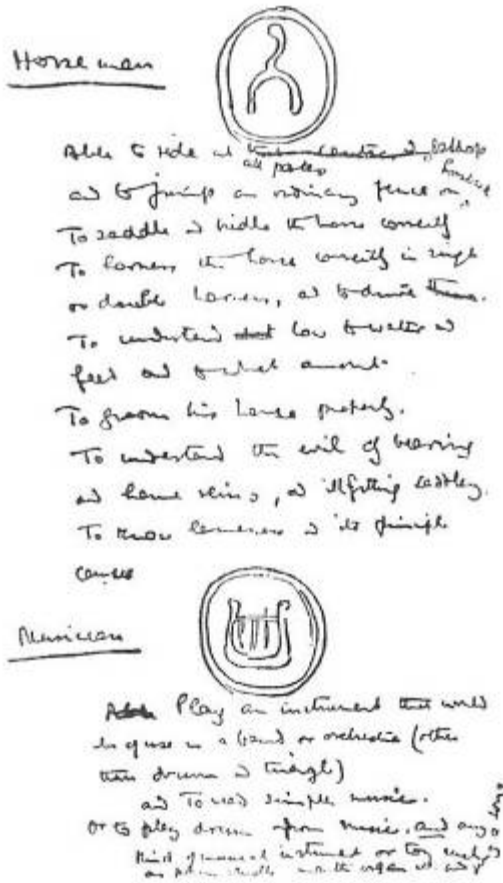 Horseman
Able to ride at all paces
and to jump an ordinary fence on horseback
To saddle & bridle the horse correctly
To harness the horse correctly in single
or double harness, & to drive
To understand how to water &
feed and to what amount.
To groom his horse properly.
To understand the evil of bearing
and reins, & ill fitting saddlery.
To know lameness & its principle
causes
Musician
Play an instrument that would
be of use in a band or orchestra (other
than drum & triangle)
and To read simple music.
Or to play drum from music, and any
kind of musical instrument or toy such
as